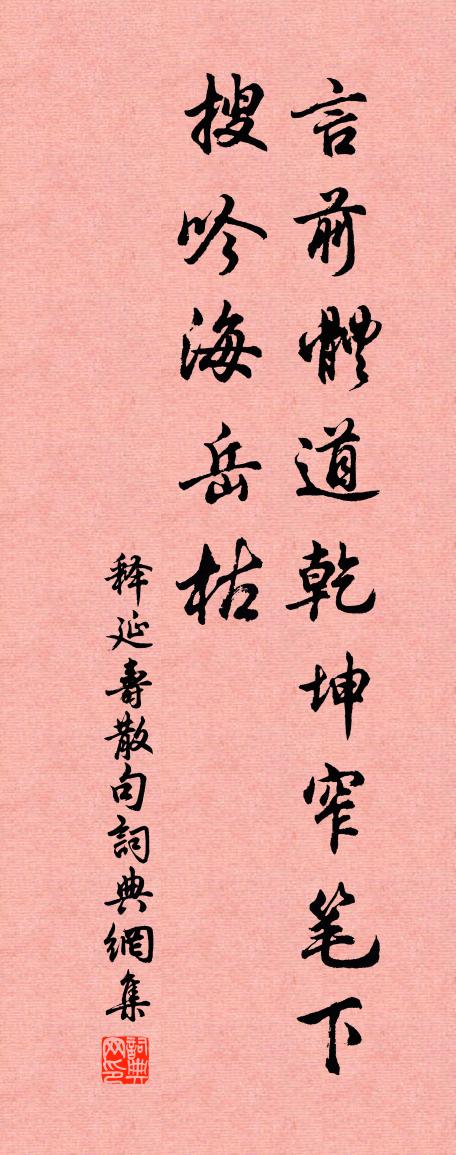 言前體道乾坤窄笔下
搜吟海岳枯
释延壽散句詞典網集
詞典网印